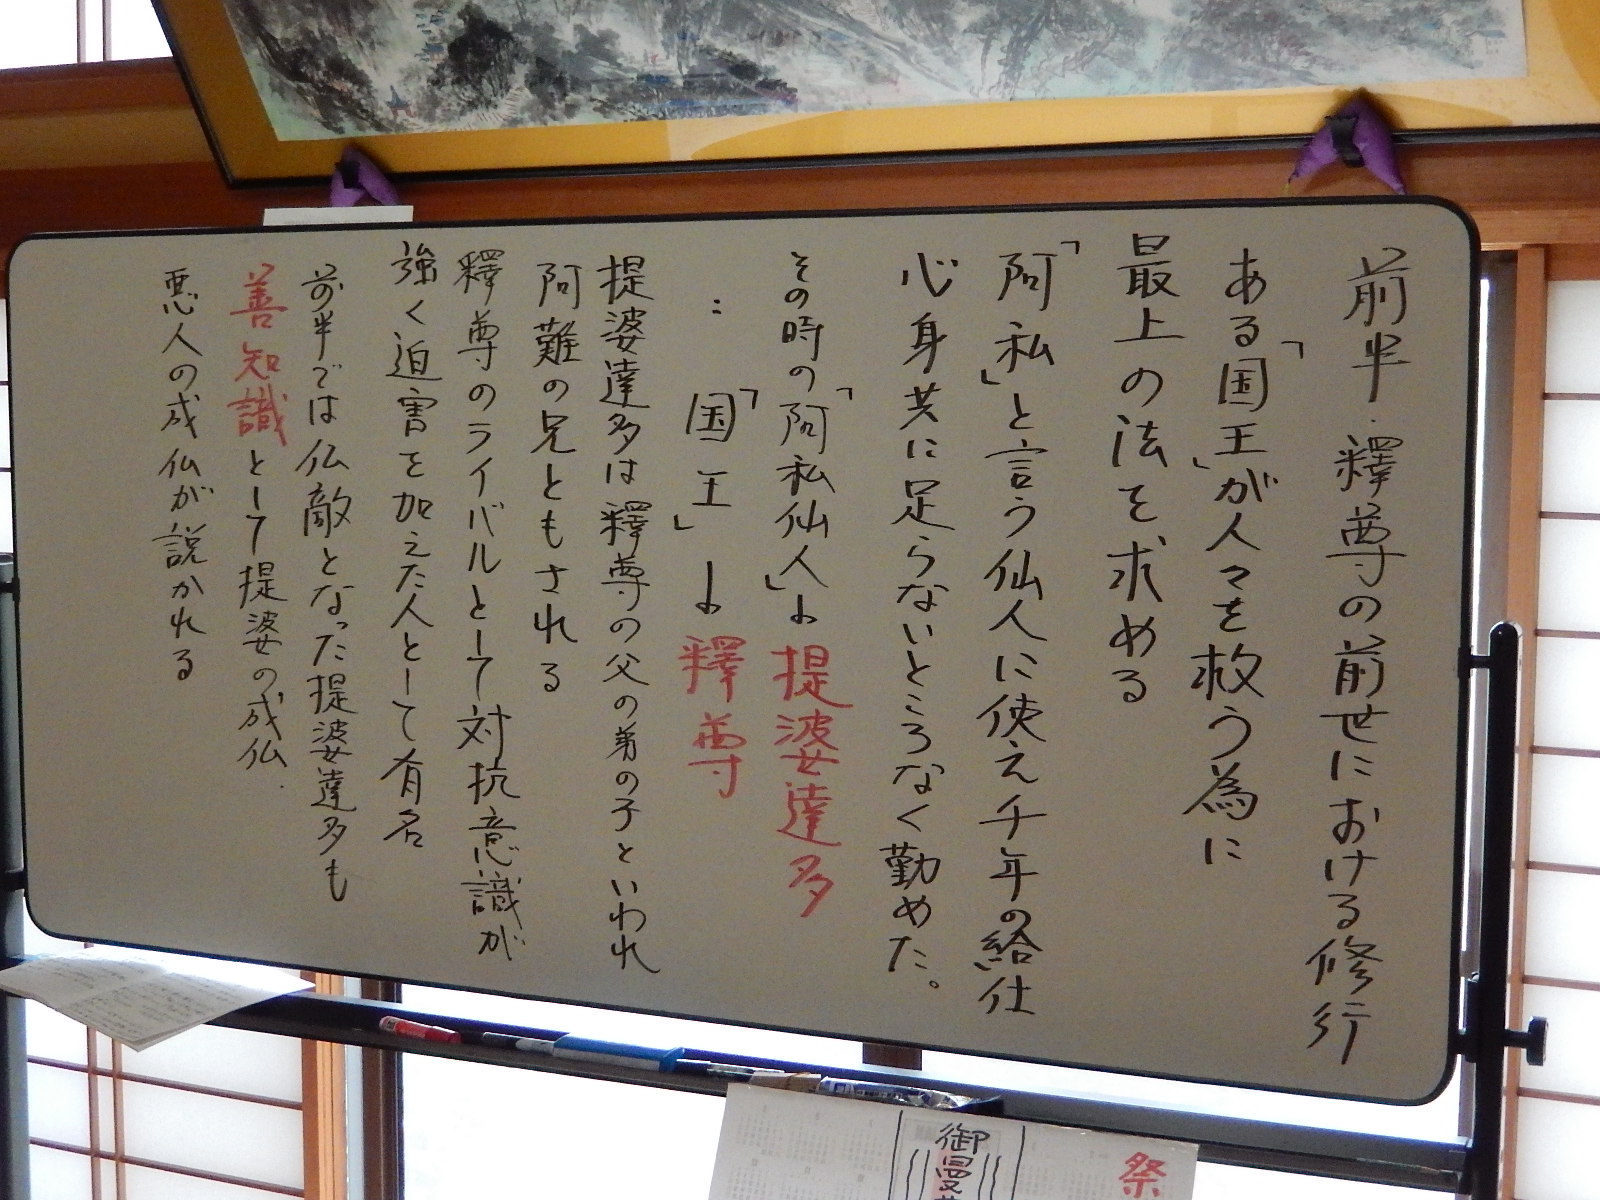 前半・釋尊の前世における修行
ある「国王」が人々を救う為に
最上の法を求める
「阿私」と言う仙人に使え千年の給仕
心身共に足らないところなく勤めた。
その時の「阿私仙人」は提婆達多
：「国王」は釋尊
提婆達多は釋尊の父の弟の子といわれ
阿難の兄ともされる
釋尊のライバルとして対抗意識が
強く迫害を加えた人として有名
前半では仏敵となった提婆達多も
善知識として提婆の成仏.
悪人の成仏が説かれる
祭
御曼